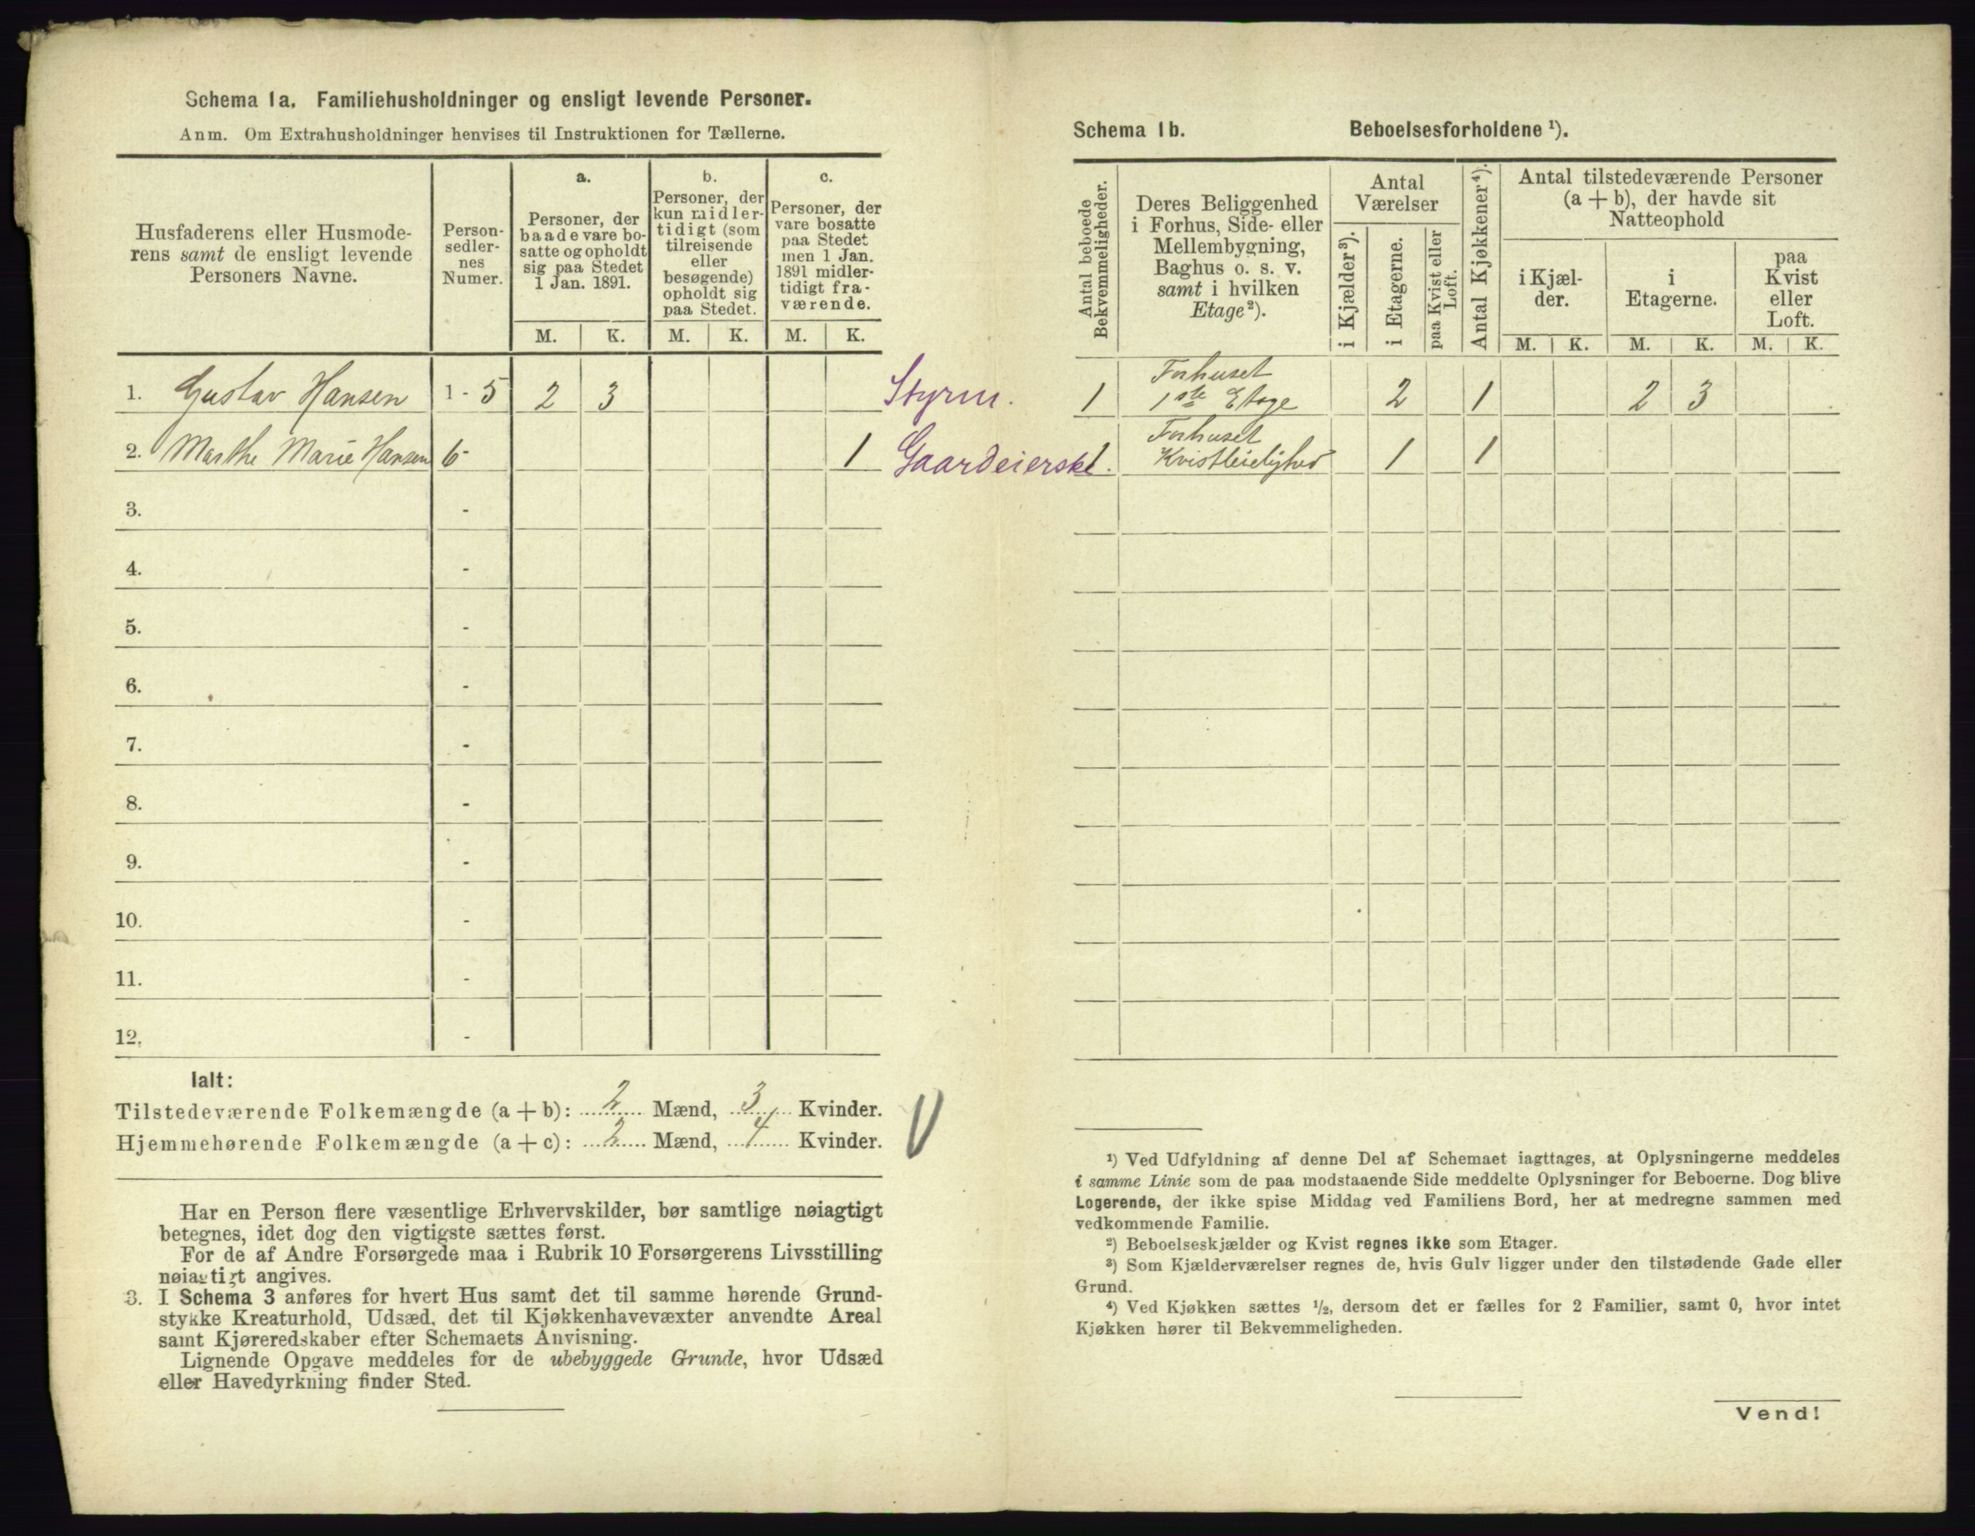 Schema 1a. Familiehusholdninger og ensligt levende Personer.
Anm. Om Extrahusholdninger henvises til Instruktionen for Tællerne.
Husfaderens eller Husmode-
rens samt de ensligt levende
Personers Navne.
Person-
sedler-
nes
Numer.
a.
Personer, der
baade vare bo-
satte og opholdt
sig paa Stedet
1 Jan. 1891.
b.
Personer, der
kun midler-
tidigt (som
tilreisende
eller
besøgende)
opholdt sig
paa Stedet.
c.
Personer, der
vare bosatte
paa Stedet
men 1 Jan.
1891 midler-
tidigt fra-
værende.
M. K. M. K. M. K.
1. Gustav Hansen 1 - 5 2 3 Styrm.
2. Marthe Marie Hansen 6 - 1 Gaardeiersk.
3. -
4. -
5. -
6. -
7. -
8. -
9. -
10. -
11. -
12. -
Ialt:
Tilstedeværende Folkemængde (a + b): 2 Mænd, 3 Kvinder.
Hjemmehørende Folkemængde (a + c): 2 Mænd, 4 Kvinder.
Har en Person flere væsentlige Erhvervskilder, bør samtlige nøiagtigt
betegnes, idet dog den vigtigste sættes først.
For de af Andre Forsørgede maa i Rubrik 10 Forsørgerens Livsstilling
nøiagtigt angives.
3. I Schema 3 anføres for hvert Hus samt det til samme hørende Grund-
stykke Kreaturhold, Udsæd, det til Kjøkkenhavevæxter anvendte Areal
samt Kjøreredskaber efter Schemaets Anvisning.
Lignende Opgave meddeles for de ubebyggede Grunde, hvor Udsæd
eller Havedyrkning finder Sted.
Schema 1b. Beboelsesforholdene ¹).
Antal beboede
Bekvemmeligheder.
Deres Beliggenhed
i Forhus, Side- eller
Mellembygning,
Baghus o. s. v.
samt i hvilken
Etage²).
Antal
Værelser
i Kjælder³).
i Etagerne.
paa Kvist eller
Loft.
Antal Kjøkkener⁴).
Antal tilstedeværende Personer
(a + b), der havde sit
Natteophold
i Kjæl-
der.
i
Etagerne.
paa
Kvist
eller
Loft.
M. K. M. K. M. K.
Forhuset
1 1ste Etage 2 1 2 3
Forhuset
1 Kvistleilighed 1 1
¹) Ved Udfyldning af denne Del af Schemaet iagttages, at Oplysningerne meddeles
i samme Linie som de paa modstaaende Side meddelte Oplysninger for Beboerne. Dog blive
Logerende, der ikke spise Middag ved Familiens Bord, her at medregne sammen med
vedkommende Familie.
²) Beboelseskjælder og Kvist regnes ikke som Etager.
³) Som Kjælderværelser regnes de, hvis Gulv ligger under den tilstødende Gade eller
Grund.
⁴) Ved Kjøkken sættes ½, dersom det er fælles for 2 Familier, samt 0, hvor intet
Kjøkken hører til Bekvemmeligheden.
Vend!